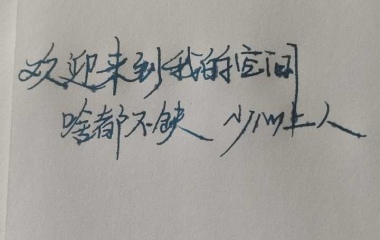 欢迎来到我的空间
啥都不缺 少心上人